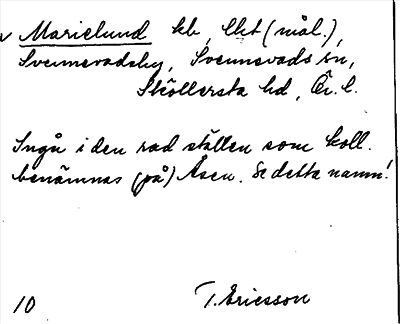 v Marielund kb, lht (mål.),
Svennevadsby, Svennevads sn,
Sköllersta hd, Ör. l.
Ingå i den rad ställen som koll.
benämnas (på) Åsen. Se detta namn!
10 T. Ericsson